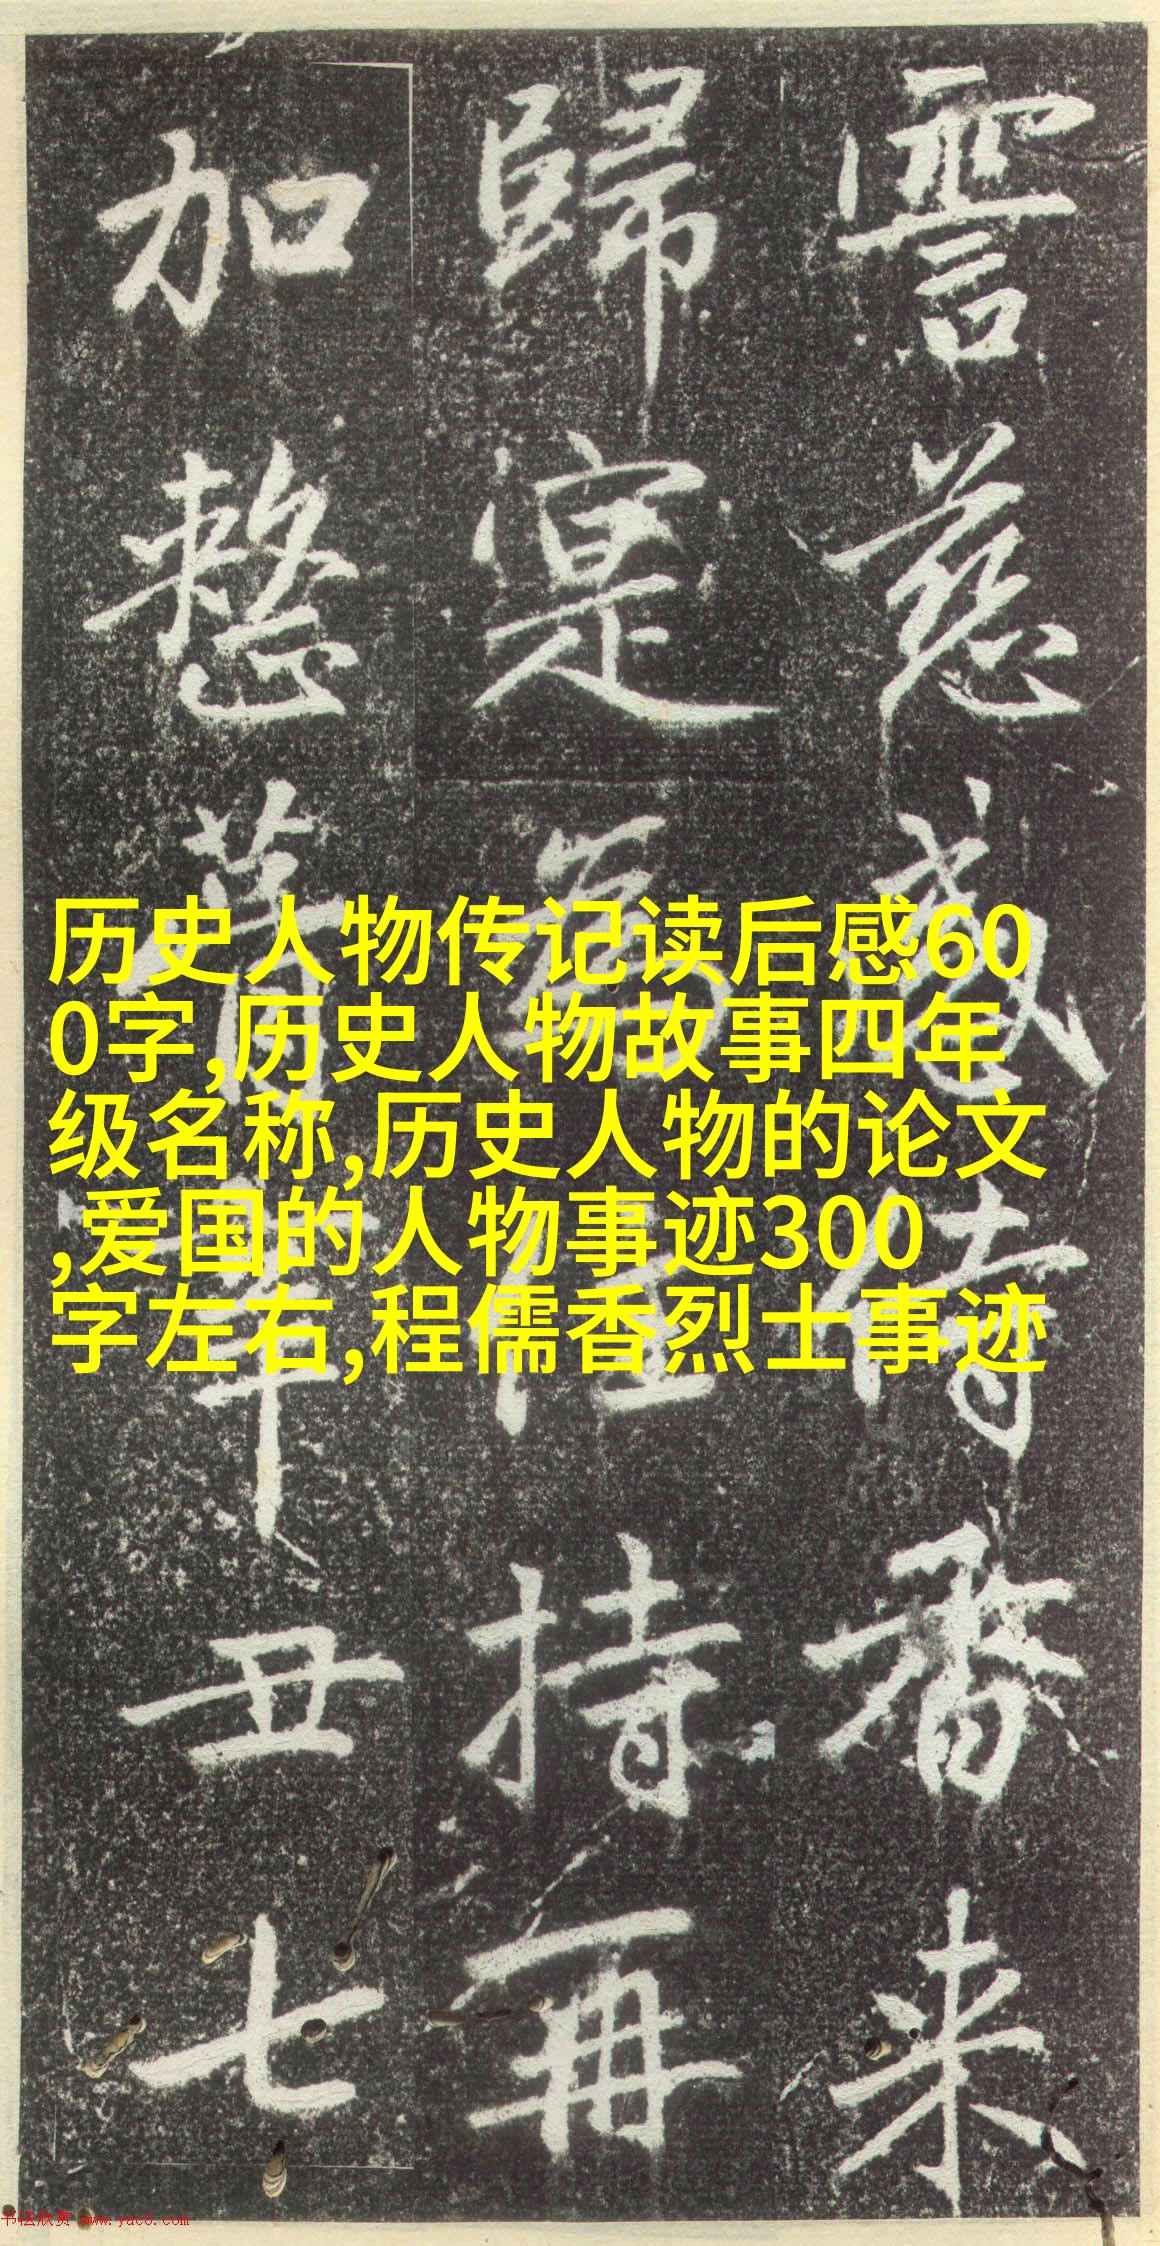 历史人物传记读后感60
0字,历史人物故事四年
级名称,历史人物的论文
,爱国的人物事迹300
字左右,程儒香烈士事迹
霅慈感侍番来
歸寔為住持再
加整葺辛丑七
书法欣赏 www.yac8.com